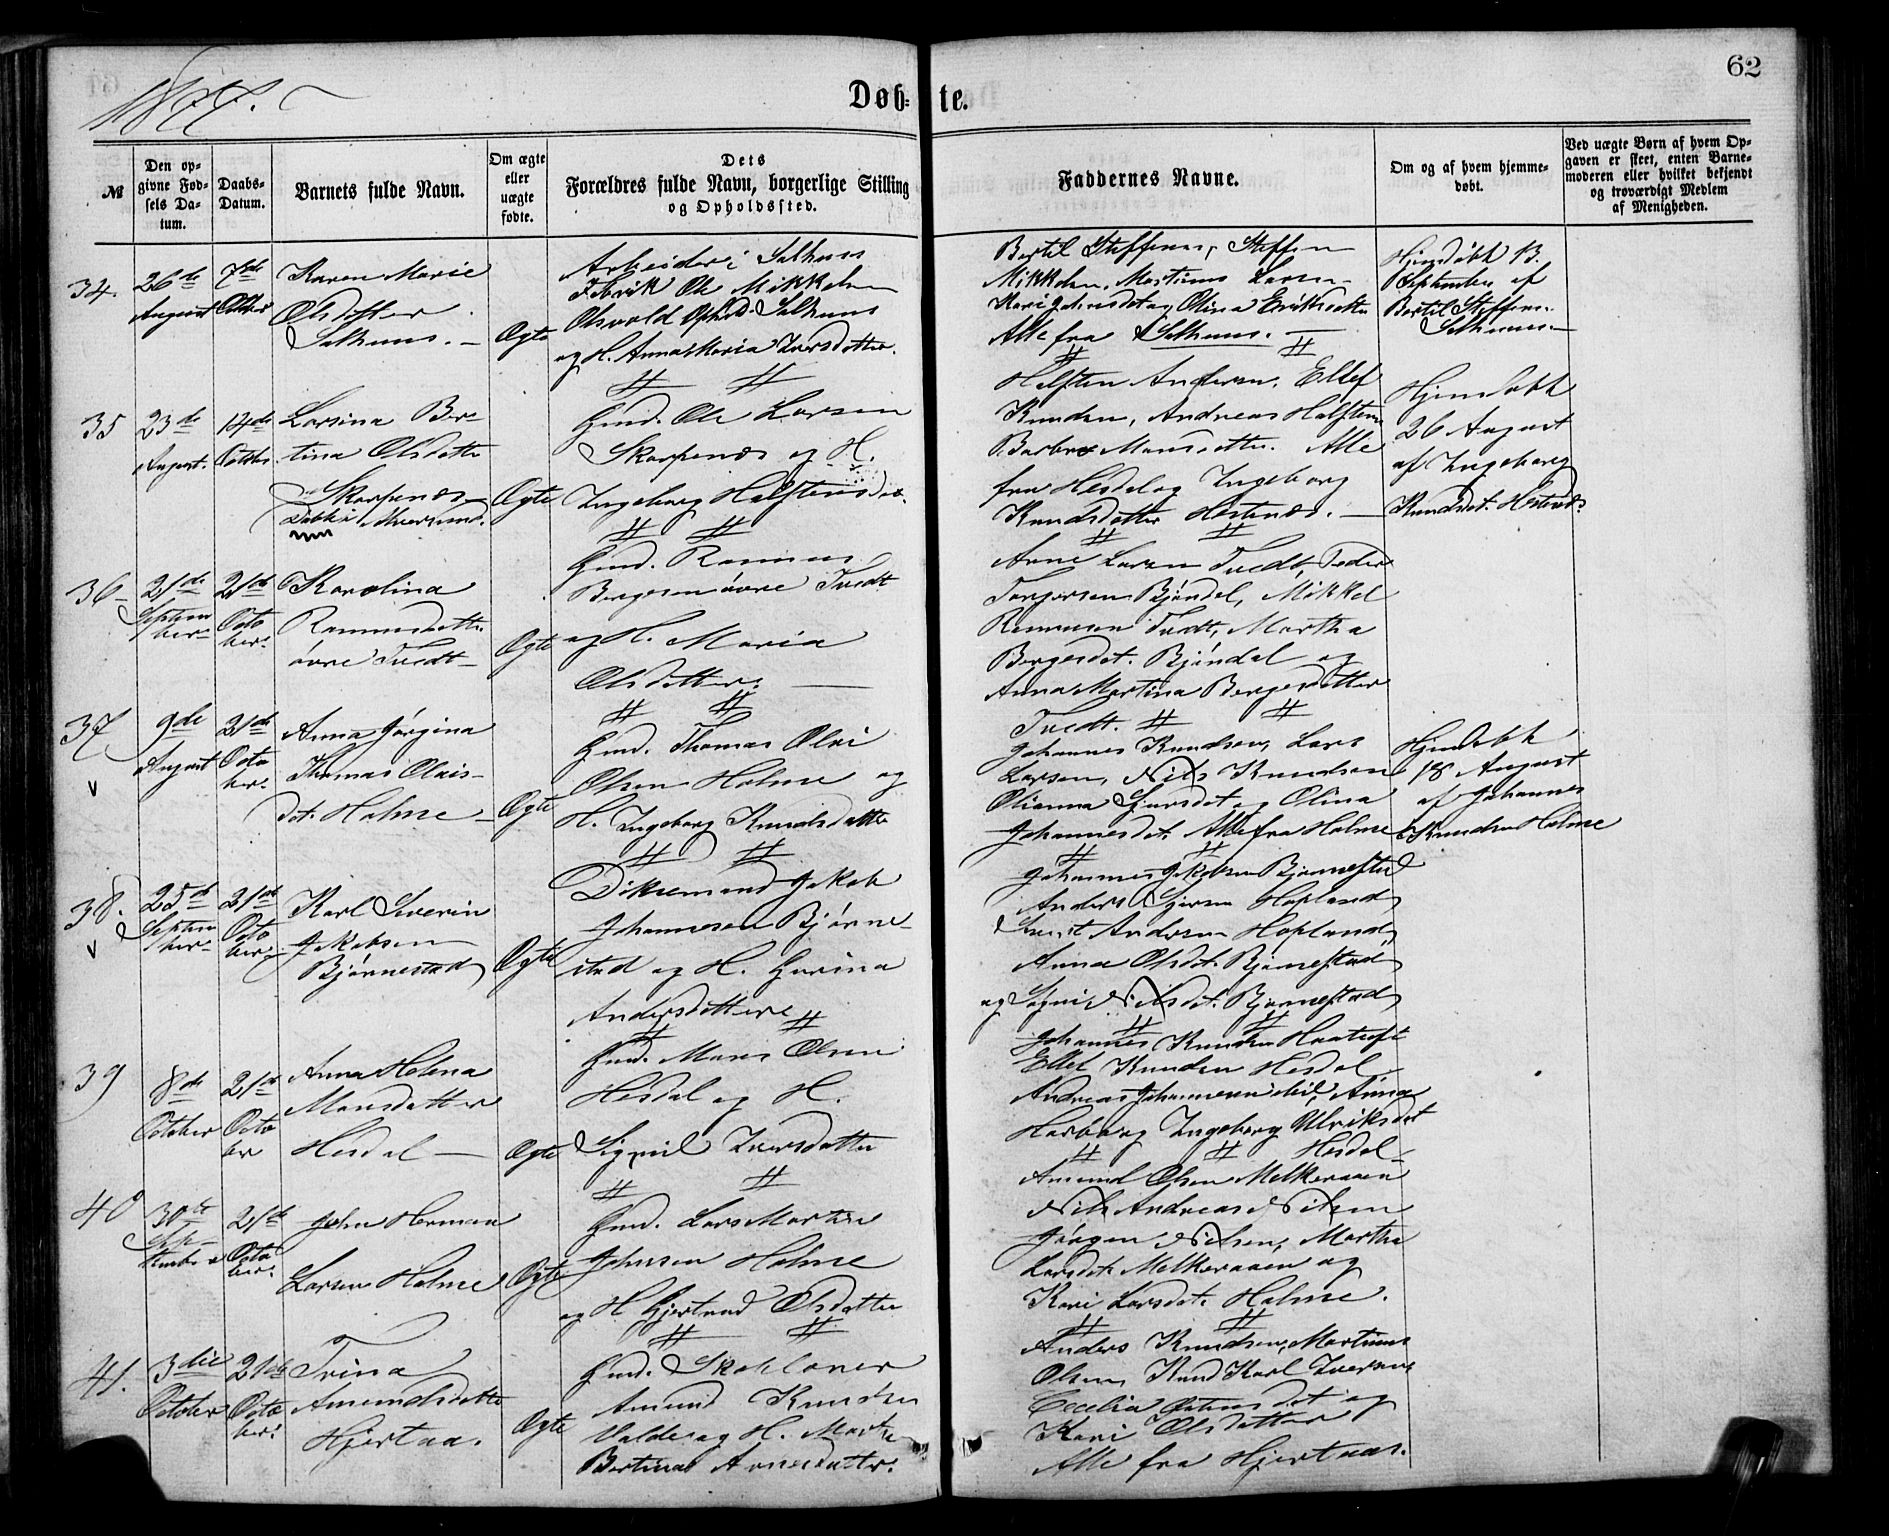 1877.
Døb= te.
62
№
Den op=
givne Fød=
sels Da=
tum.
Daabs=
Datum.
Barnets fulde Navn.
Om ægte
eller
uægte
fødte.
Dets
Forældres fulde Navn, borgerlige Stilling
og Opholdssted.
Faddernes Navne.
Om og af hvem hjemme=
døbt.
Ved uægte Børn af hvem Op=
gaven er skeet, enten Barne=
moderen eller hvilket bekjendt
og troværdigt Medlem
af Menigheden.
34.
26de
August
7de
October
Karen Marie
Olsdatter
Salhuus.
Ægte
Arbeider i Salhuus
Fabrik Ole Mikkelsen
Osvold Ophd. Salhuus
og H. Anna Maria Iversdatter.
Bertil Steffensen, Steffen
Mikkelsen, Martinus Larsen
Kari Johnsdat og Olina Eriksdatter
Alle fra Salhuus.
Hjemdøbt 13
September af
Bertil Steffens.
Salhuus
35
23de
August.
14de
October
Larsina Ber-
tina Olsdatter
Skarpenæs
Døbt i Kversund.
Ægte
Gmd. Ole Larsen
Skarpenæs og H.
Ingeborg Halfstensdat.
Halfsten Andersen, Ellef
Knudsen, Andreas Halfstens.
Barbra Monsdatter. Alle
fra Hesdal og Ingeborg
Knudsdatter Hestenæs.
Hjemdøbt
26 August
af Ingeborg
Knudsdt. Hestenæs
36
21de
Septem
ber
21de
Octo
ber.
Karolina
Rasmusdatter
øvre Tvedt
Ægte
Gmd. Rasmus
Bergesen øvre Tvedt
og H. Maria
Olsdatter.
Arne Larsen Tvedt, Peder
Torgersen Bjøndal, Mikkel
Rasmusen Tvedt, Martha
Bergesdat. Bjøndal og
Anna Martina Bergesdatter
Tvedt.
37
v
9de
August
21de
Octo
ber.
Anna Jørgina
Thomas Olais-
dt. Holme
Ægte
Gmd. Thomas Olai
Olsen Holme og
H. Ingeborg Knudsdatter
Johannes Knudsen, Lars
Larsen, Nils Knudsen
Olianna Sjursdat og Olina
Johannesdt. Alle fra Holme
Hjemdøbt
18 August
af Johannes
Knudsen Holme
38.
v
25de
Septem
ber
21de
Octo
ber
Karl Severin
Jakobsen
Bjørnestad
Ægte
Diksemand Jakob
Johannesen Bjørne-
stad og H. Gurina
Andersdatter
Johannes Jakobsen Bjørnestad
Anders Sjursen Hopland
Andersen Hopland,
Anna Olsdt. Bjørnestad
og Nilsdt. Bjørnestad
39
8de
October
21de
Octo
ber
Anna Helena
Monsdatter
Hesdal
Ægte
Gmd. Mons Olsen
Hesdal og H.
Iversdatter
Johannes Knudsen
Ellef Knudsen Hesdal
Andreas Johannesen Anna
Ingeborg Ulriksdat
Hesdal
40
30te
Sep
tember
21de
Octo
ber.
John Herman
Larsen Holme
Ægte
Gmd. Lars Martin
Johnsen Holme
og H. Gjertrud Olsdatter
Amund Olsen Melkeraaen
Nils Andreas Nilsen
Jørgen Nilsen, Martha
Larsdt. Melkeraaen og
Kari Larsdt. Holme.
41.
3die
October
21de
Octo
ber.
Trina
Amundsdatter
Hjertaas.
Ægte
Gmd. Skoelærer
Amund Knudsen
Valde og H. Marta
Bertina Arnesdatter.
Anders Knudsen, Martinus
Olsen, Knud Karl Iversen,
Cecelia Ostensdat og
Kari Olsdatter
Alle fra Hjertaas.